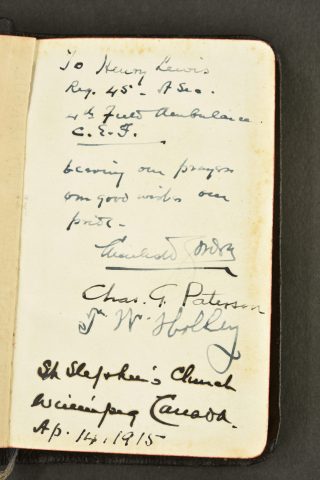 To Henry Lewis
Reg. 45 - A Sec.
4th Field Ambulance.
C.E.F.
bearing our prayers
our good wishes our
pride -
Gordon
Chas. G. Paterson
W. Holley
St Stephen's Church
Winnipeg Canada.
Ap. 14. 1915